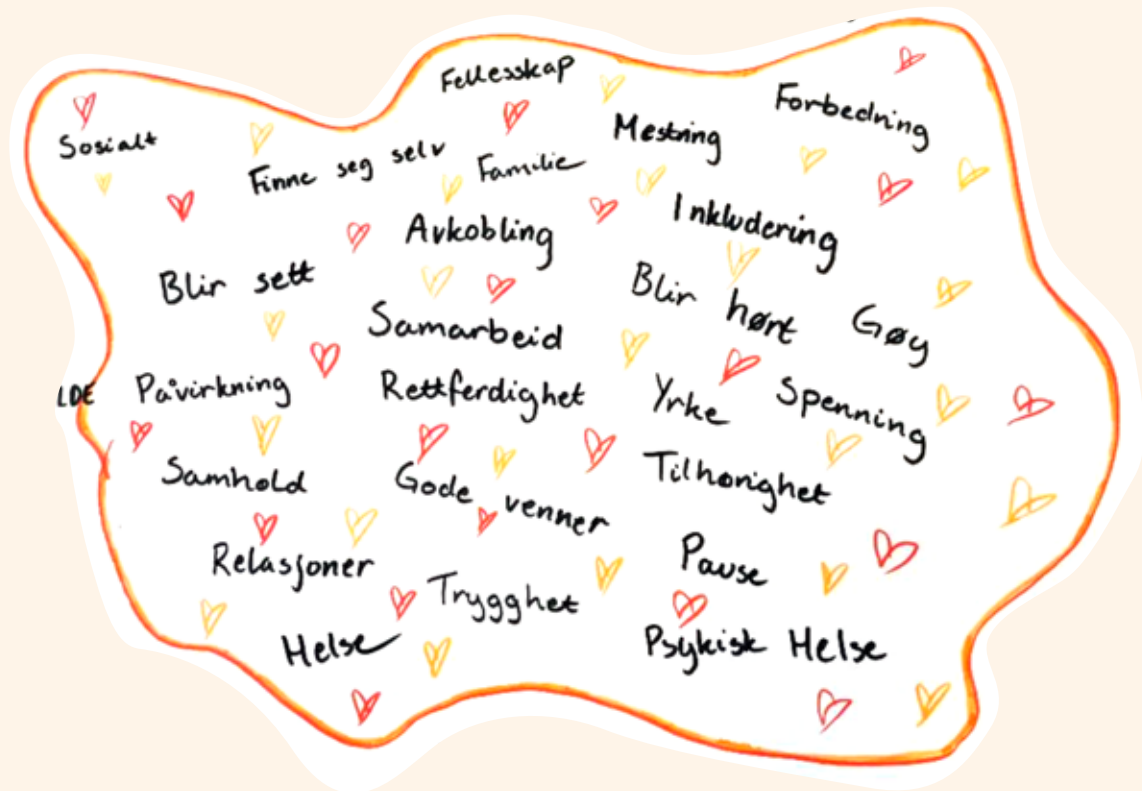 Fellesskap
Forbedning
Mestring
Sosialt
Finne seg selv
Familie
Inkludering
Avkobling
Blir sett
Blir hørt
Gøy
Samarbeid
LDE
Påvirkning
Rettferdighet
Yrke
Spenning
Samhold
Gode venner
Tilhørighet
Relasjoner
Pause
Trygghet
Helse
Psykisk Helse